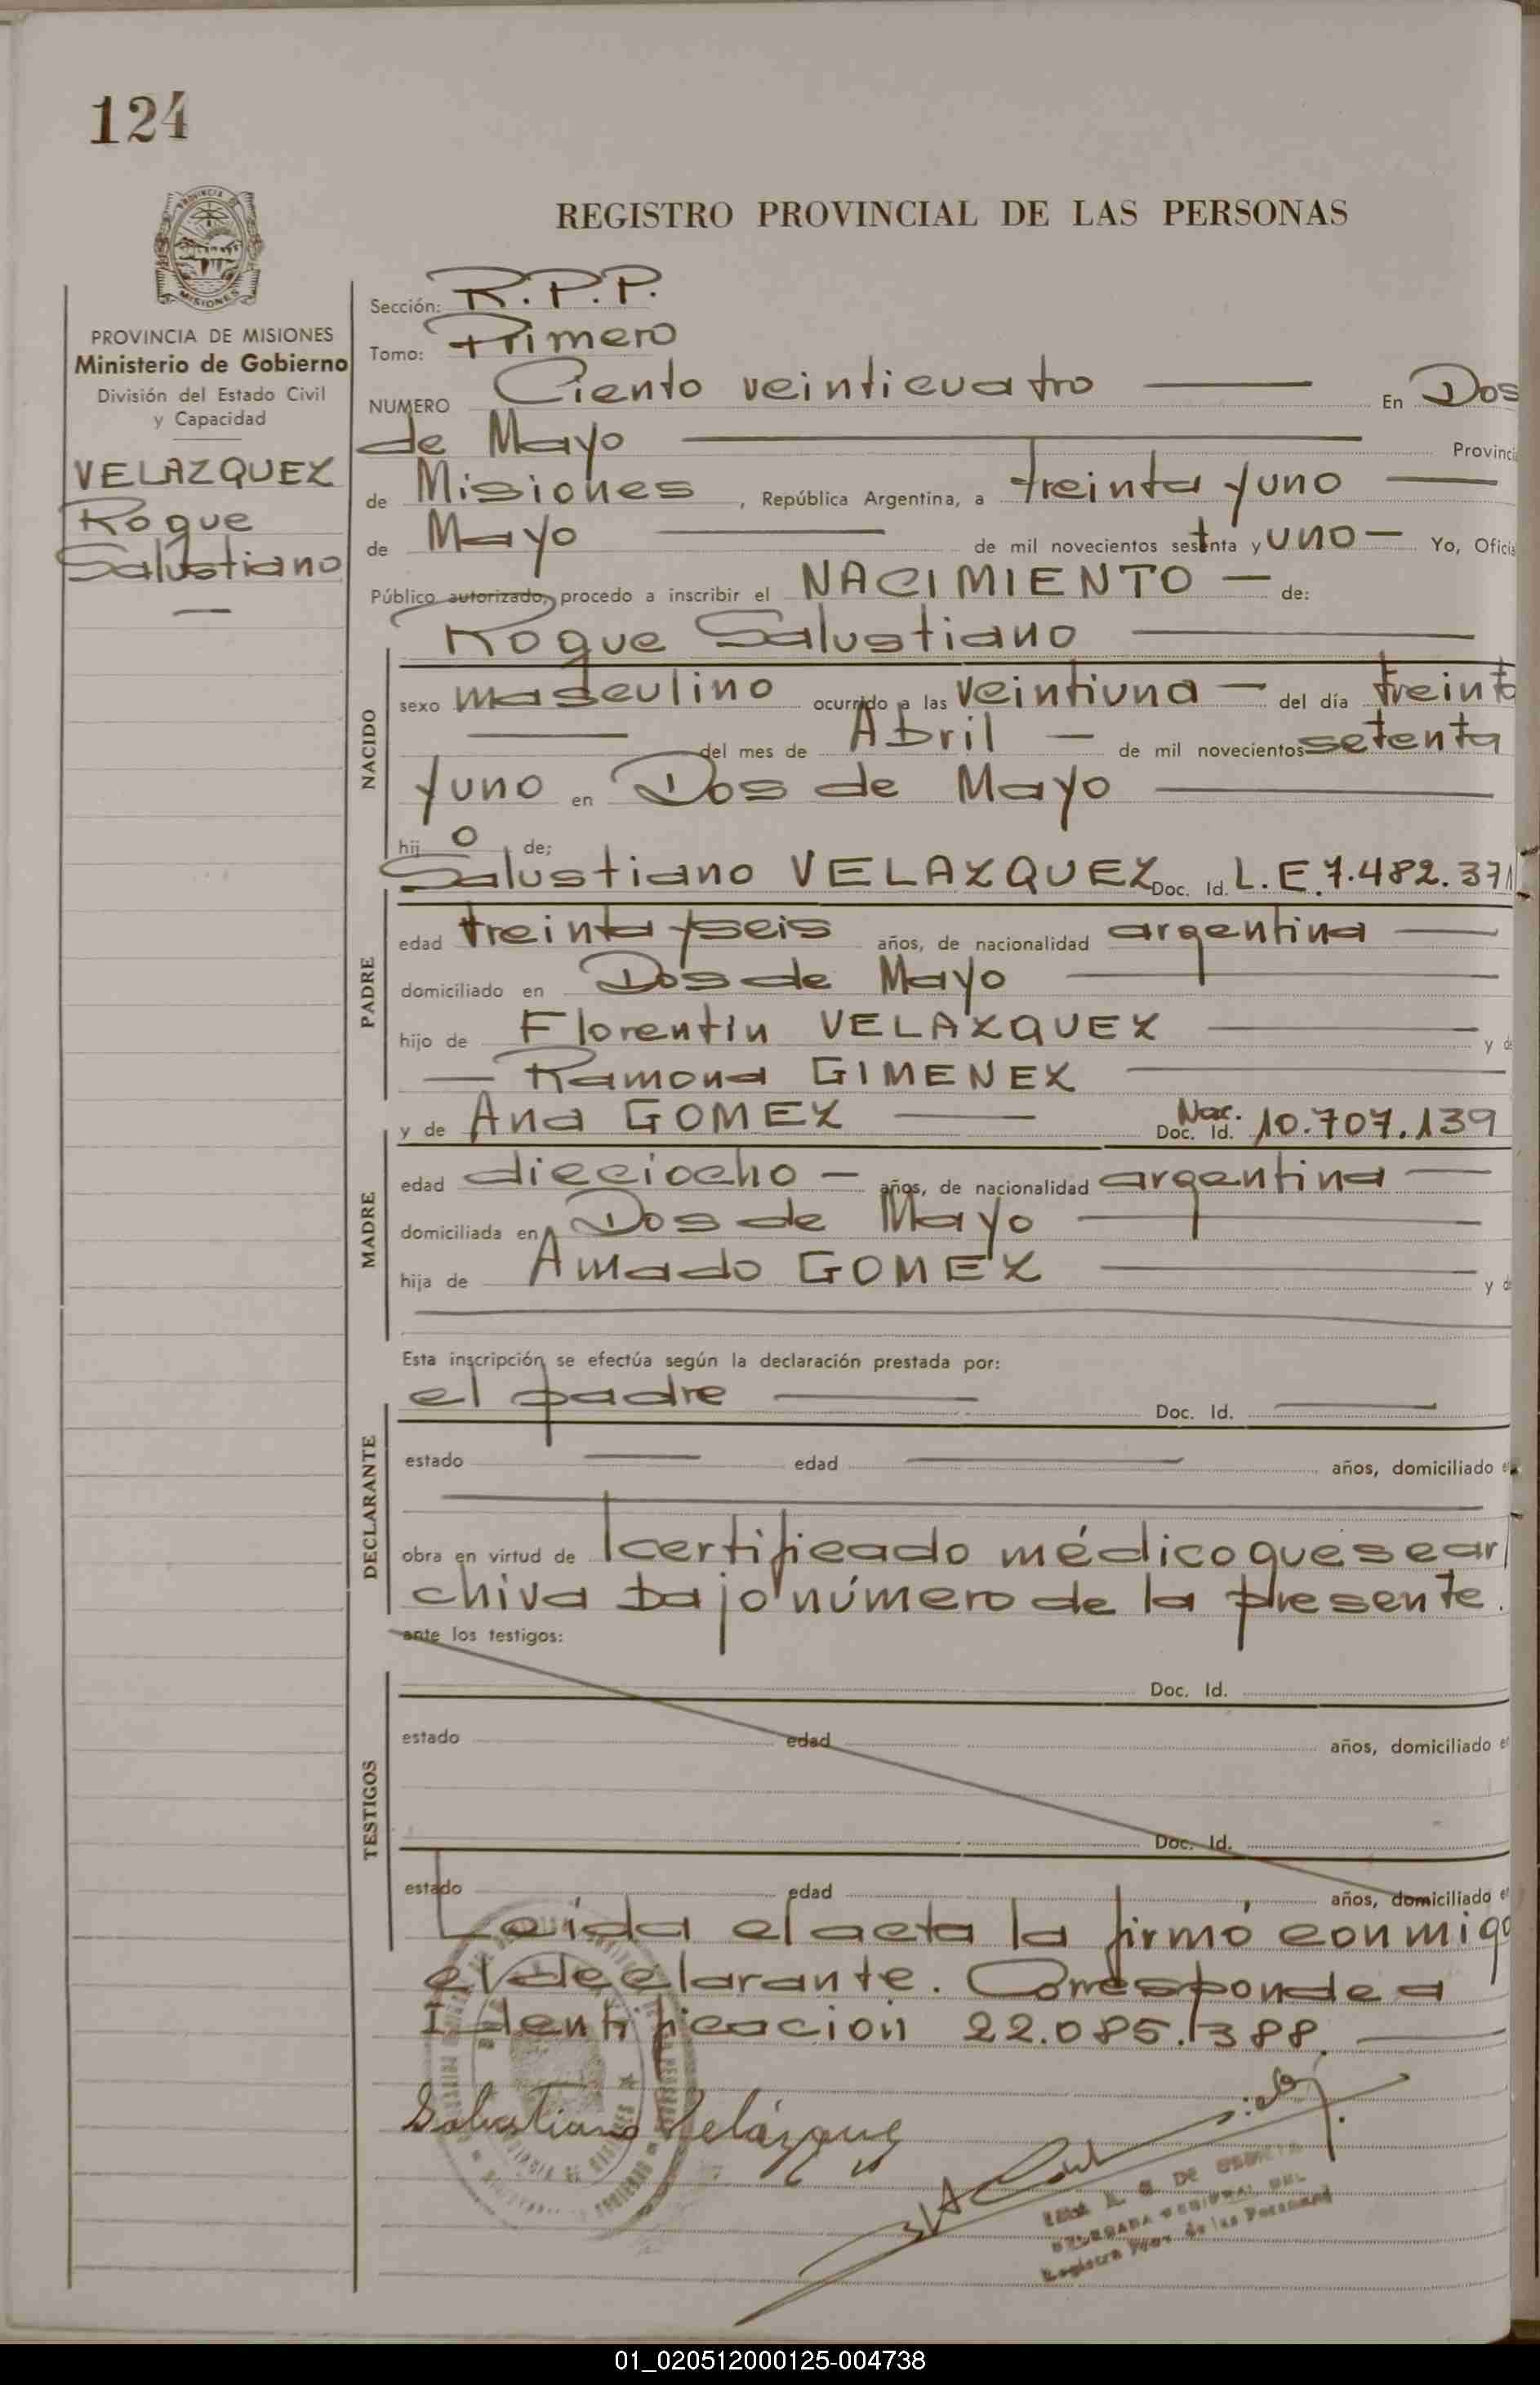 124
REGISTRO PROVINCIAL DE LAS PERSONAS
PROVINCIA DE MISIONES
Ministerio de Gobierno
División del Estado Civil
y Capacidad
VELAZQUEZ
Roque
Salustiano
Sección: R.P.P.
Tomo: Primero
NUMERO Ciento veinticuatro En Dos
de Mayo Provinci
de Misiones, República Argentina, a treinta y uno
de Mayo de mil novecientos setenta y uno Yo, Oficia
Público autorizado, procedo a inscribir el NACIMIENTO de:
Roque Salustiano
NACIDO
sexo masculino ocurrido a las veintiuna del día treinta
del mes de Abril de mil novecientos setenta
y uno en Dos de Mayo
hijo de:
Salustiano VELAZQUEZ Doc. Id. L.E. 7.482.371
PADRE
edad treinta y seis años, de nacionalidad argentina
domiciliado en Dos de Mayo
hijo de Florentin VELAZQUEZ y d
Ramona GIMENEZ
y de Ana GOMEZ Doc. Id. Nac. 10.707.139
MADRE
edad dieciocho años, de nacionalidad argentina
domiciliada en Dos de Mayo
hija de Amado GOMEZ y d
Esta inscripción se efectúa según la declaración prestada por:
el padre Doc. Id.
DECLARANTE
estado edad años, domiciliado e
obra en virtud de certificado médico que se ar
chiva bajo número de la presente.
ante los testigos:
Doc. Id.
TESTIGOS
estado edad años, domiciliado e
Doc. Id.
estado edad años, domiciliado e
Leída el acta la firmó conmigo
el declarante. Corresponde a
Identificación 22.085.388.
Salustiano Velázquez
DE
Registro Prov. de las Personas
01_020512000125-004738